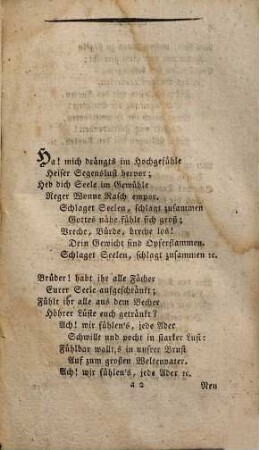 Ha! mich drängts im Hochgefühle
Heiser Segenslust hervor;
Heb dich Seele im Gewühle
Reger Wonne Rasch empor.
Schlaget Seelen, schlagt zusammen
Gottes nähe fühlt sich groß;
Breche, Bürde, breche los!
Dein Gewicht sind Opferflammen.
Schlaget Seelen, schlagt zusammen ꝛc.
Brüder! habt ihr alle Fächer
Eurer Seele aufgeschränkt;
Fühlt ihr alle aus dem Becher
Höhrer Lüste euch getränkt?
Ach! wir fühlen's, jede Ader
Schwillt und pocht in starker Lust:
Fühlbar wallt,s in unsrer Brust
Auf zum großen Weltenvater.
Ach! wir fühlen's, jede Ader ꝛc.
a 2 Neu